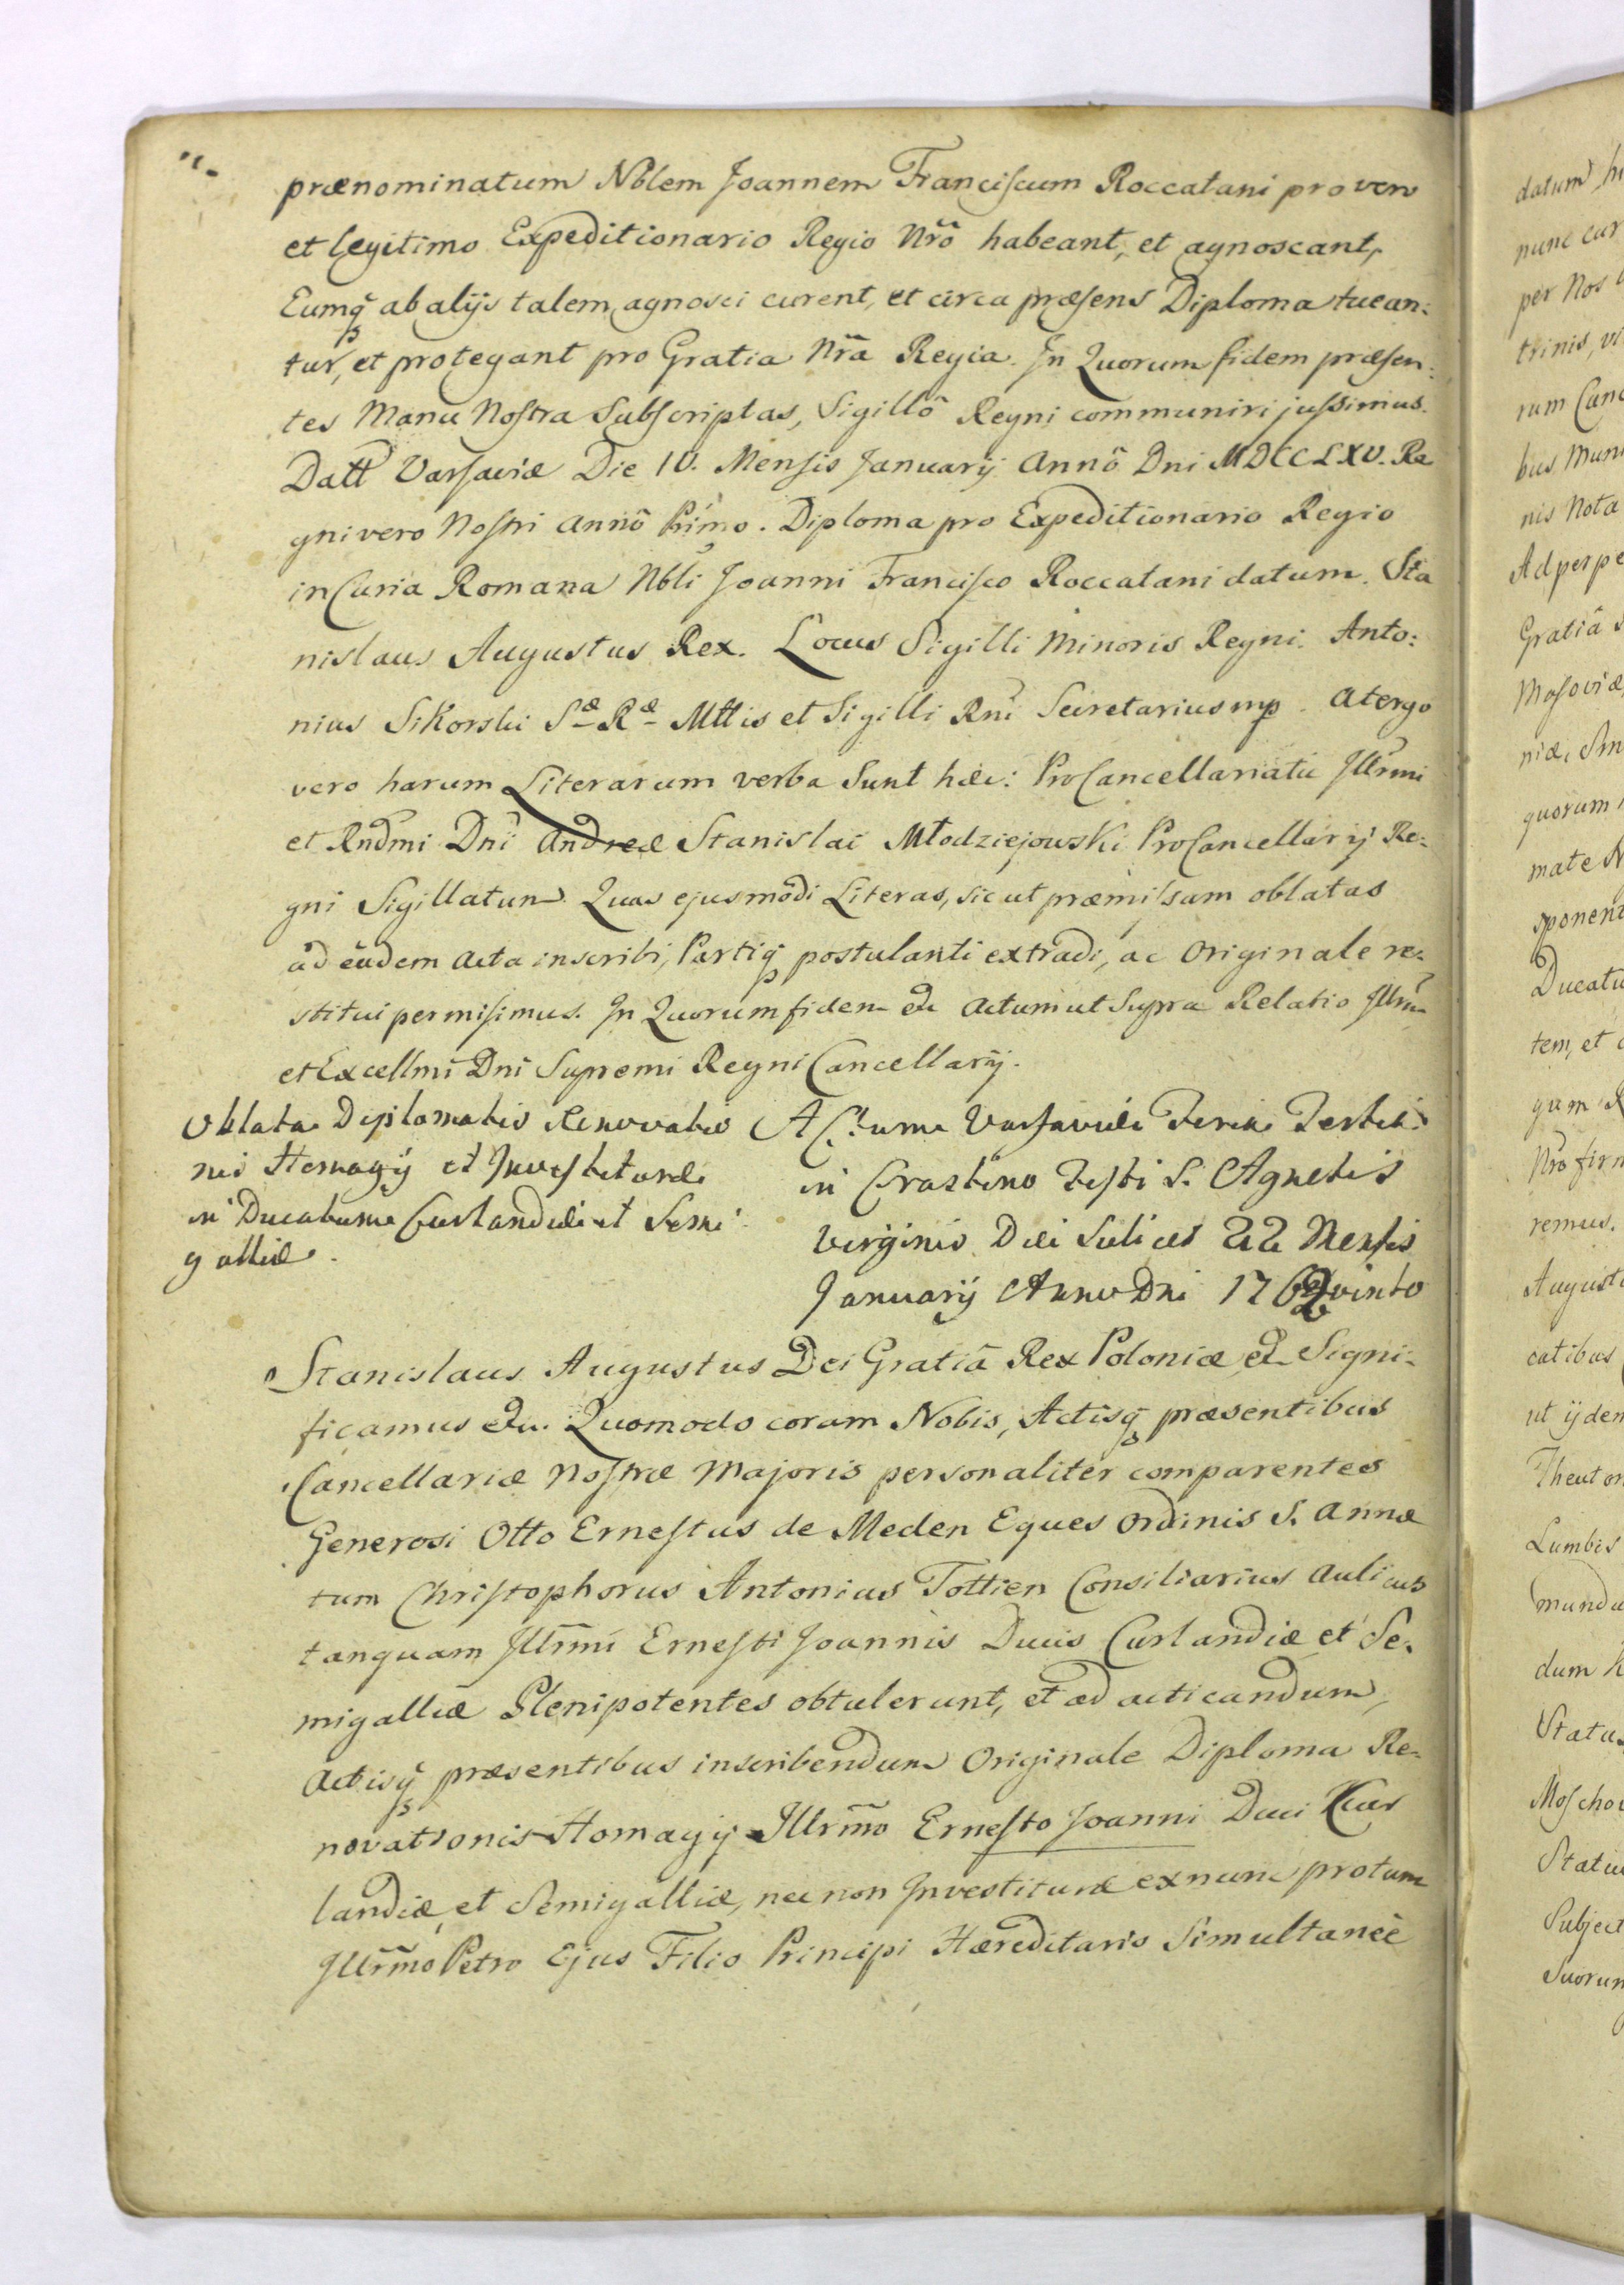 prænominatum Nblem Joannem Franciscum Roccatani pro vero
et legitimo Expeditionario Regio Nrõ habeant, et agnoscant,
Eumq̃ ab alijs talem agnosci curent, et circa præsens Diploma tuean:
tur, et protegant pro Gratia Nrã Regia. In Quorum fidem præsen:
tes Manu Nostra Subscriptas, Sigillô Regni communiri jussimus.
Datt Varsaviæ Die 10. Mensis Januarij Annô Dni MDCCLXV. Re
gni vero Nostri Annô Primo. Diploma pro Expeditionario Regio
in Curia Romana Nbli Joanni Francisco Roccatani datum. Sta
nislaus Augustus Rex. Locus Sigilli Minoris Regni. Anto:
nius Sikorski Sæ Ræ Mttis et Sigilli Rni Secretarius mp. A tergo
vero harum Literarum verba Sunt hæc: ProCancellariatu Illrmi
et Rndmi Dni Andreæ Stanislai Młodziejowski ProCancellarij Re:
gni Sigillatum. Quas ejusmodi Literas, sicut præmissum oblatas
ad eadem Acta inscribi, Partiq̃ postulanti extradi, ac Originale re:
stitui permisimus. In Quorum fidem etc Actum ut Supra Relatio Illrmi
et Excellmi Dni Supremi Regni Cancellarij.
Oblata Diplomatis Renovatio
nis Homagij et Investituræ
in Ducatum Curlandiæ et Semi
galliæ.
Actum Varsaviæ Feria Tertia
in Crastino Festi S. Agnetis
Virginis Diei Scilicet 22 Mensis
Januarij Anno Dni 176Quinto
Stanislaus Augustus Dei Gratiâ Rex Poloniæ etc Signi:
ficamus etc. Quomodo coram Nobis, Actisq̃ præsentibus
Cancellariæ Nostræ Majoris personaliter comparentes
Generosi Otto Ernestus de Meden Eques Ordinis S. Annæ
tum Christophorus Antonius Tottien Consiliarius Aulicus
tanquam Illrmi Ernesti Joannis Ducis Curlandiæ et Se:
migalliæ Plenipotentes obtulerunt, et ad acticandum,
Actisq̃ præsentibus inscribendum Originale Diploma Re:
novationis Homagij Illrmo Ernesto Joanni Duci Cur
landiæ et Semigalliæ, nec non Investituræ ex nunc pro tum
Illrmo Petro Ejus Filio Principi Hæreditario Simultaneè